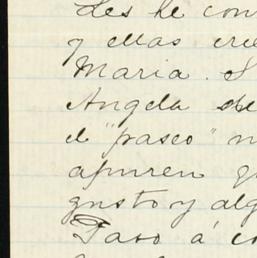 Les he con
y ellas cre
Maria. S
Angela de
el "paseo" n
apuren q
gusto y alg
Paso á co